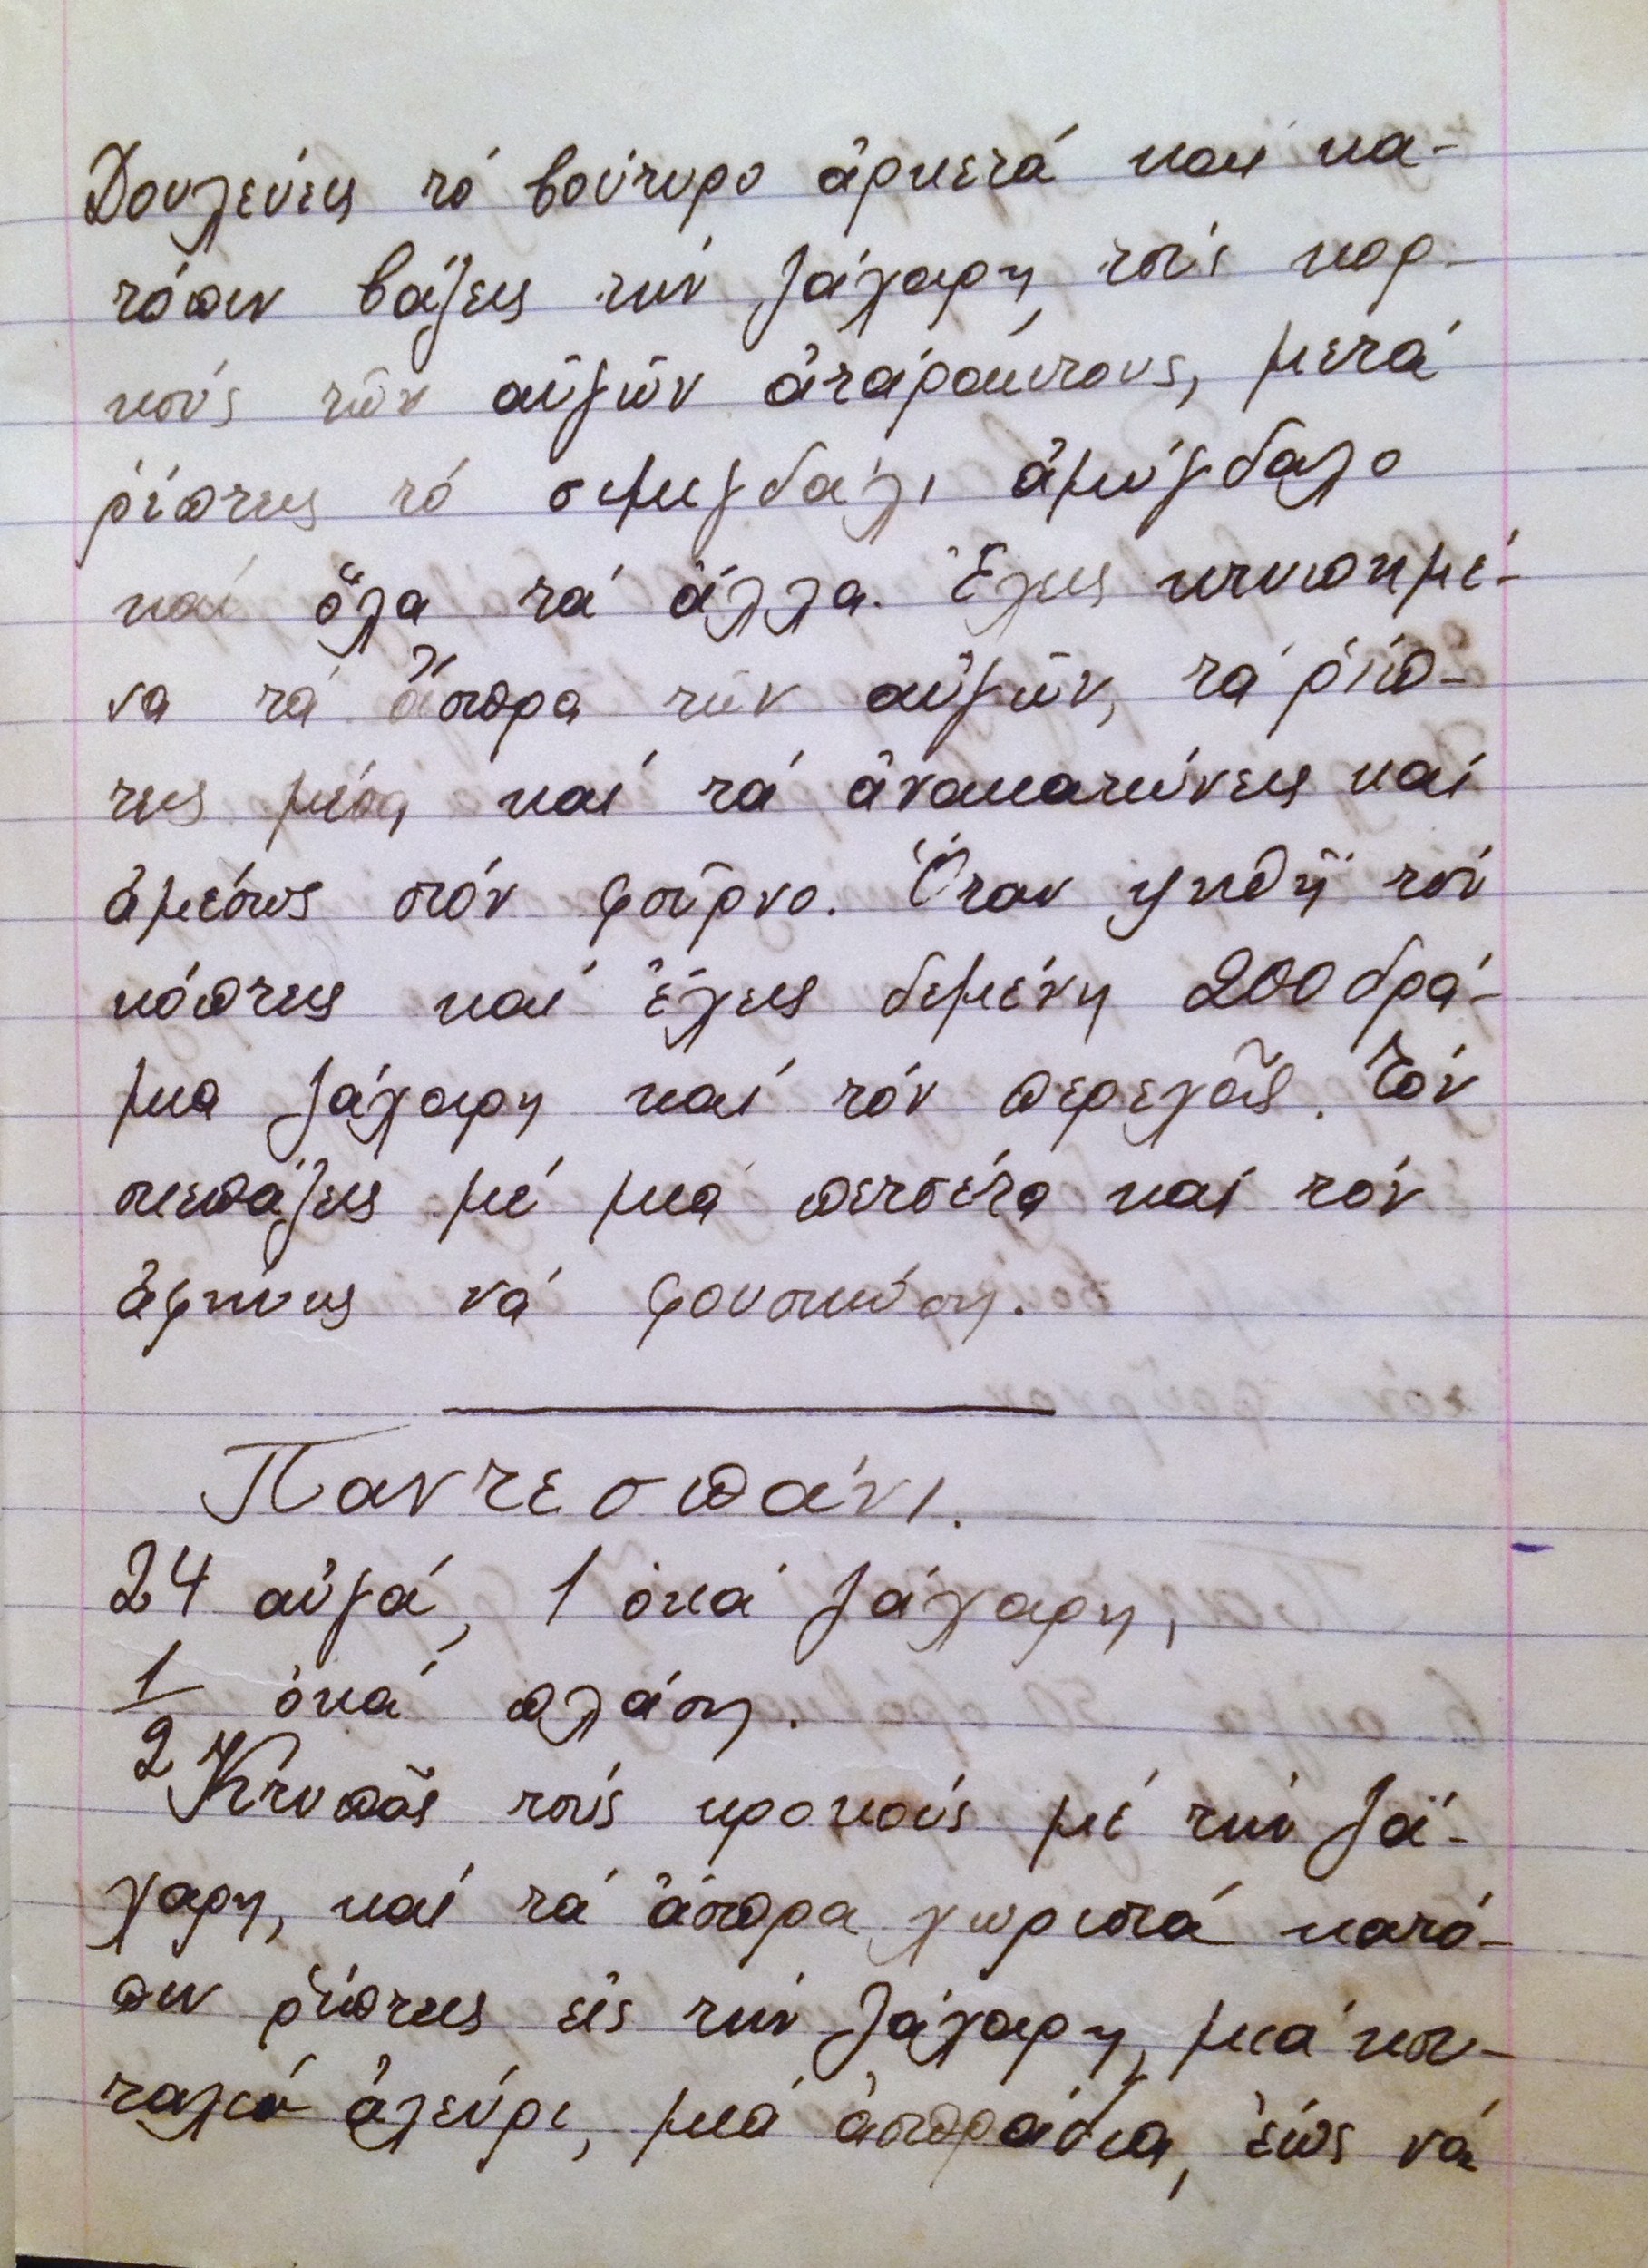 Δουλεύεις τό βούτυρο ἀρκετά και κα-
τόπιν βάζεις τήν ζάχαρη τούς κορ-
κούς τῶν αὐγῶν ἀτάραχτους, μετά
ρίπτεις τό σιμιγδάλι ἀμύγδαλο
καί ὅλα τά ἄλλα. Ἔχεις κτυπημέ-
να τά ἄσπρα τῶν αὐγῶν, τά ρίπ-
τεις μέσα καί τά ἀνακατώνεις καί
ἀμέσως στόν φοῦρνο. Ὅταν ψηθῆ τόν
κόπτεις καί ἔχεις δεμένη 200 δρά-
μια ζάχαρη καί τόν περεχᾶς. Τόν
σκεπάζεις μέ μιά πετσέτα καί τόν
ἀφήνεις νά φουσκώση.
Παντεσπάνι.
24 αὐγά, 1 ὀκά ζάχαρη,
1/2 ὀκά πλάση.
Κτυπᾶς τούς κροκούς μέ τήν ζά-
χαρη, καί τά ἄσπρα χωριστά κατό-
πιν ρίπτεις εἰς τήν ζάχαρη, μιά κου-
ταλιά ἀλεύρι, μιά ἀσπράδια, ἕως νά